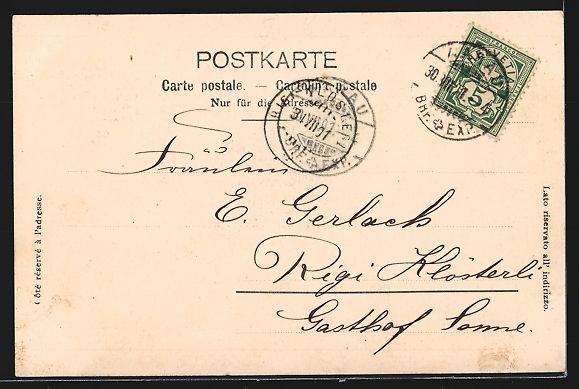 POSTKARTE
Carte postale. — Cartolina postale
Nur für die Adresse.
HELVETIA
5
BHF. EXP.
BHF. EXP.
Fräulein
E. Gerlach
Rigi Klösterli
Gasthof Sonne.
Côté réservé à l'adresse.
Lato riservato all' indirizzo.